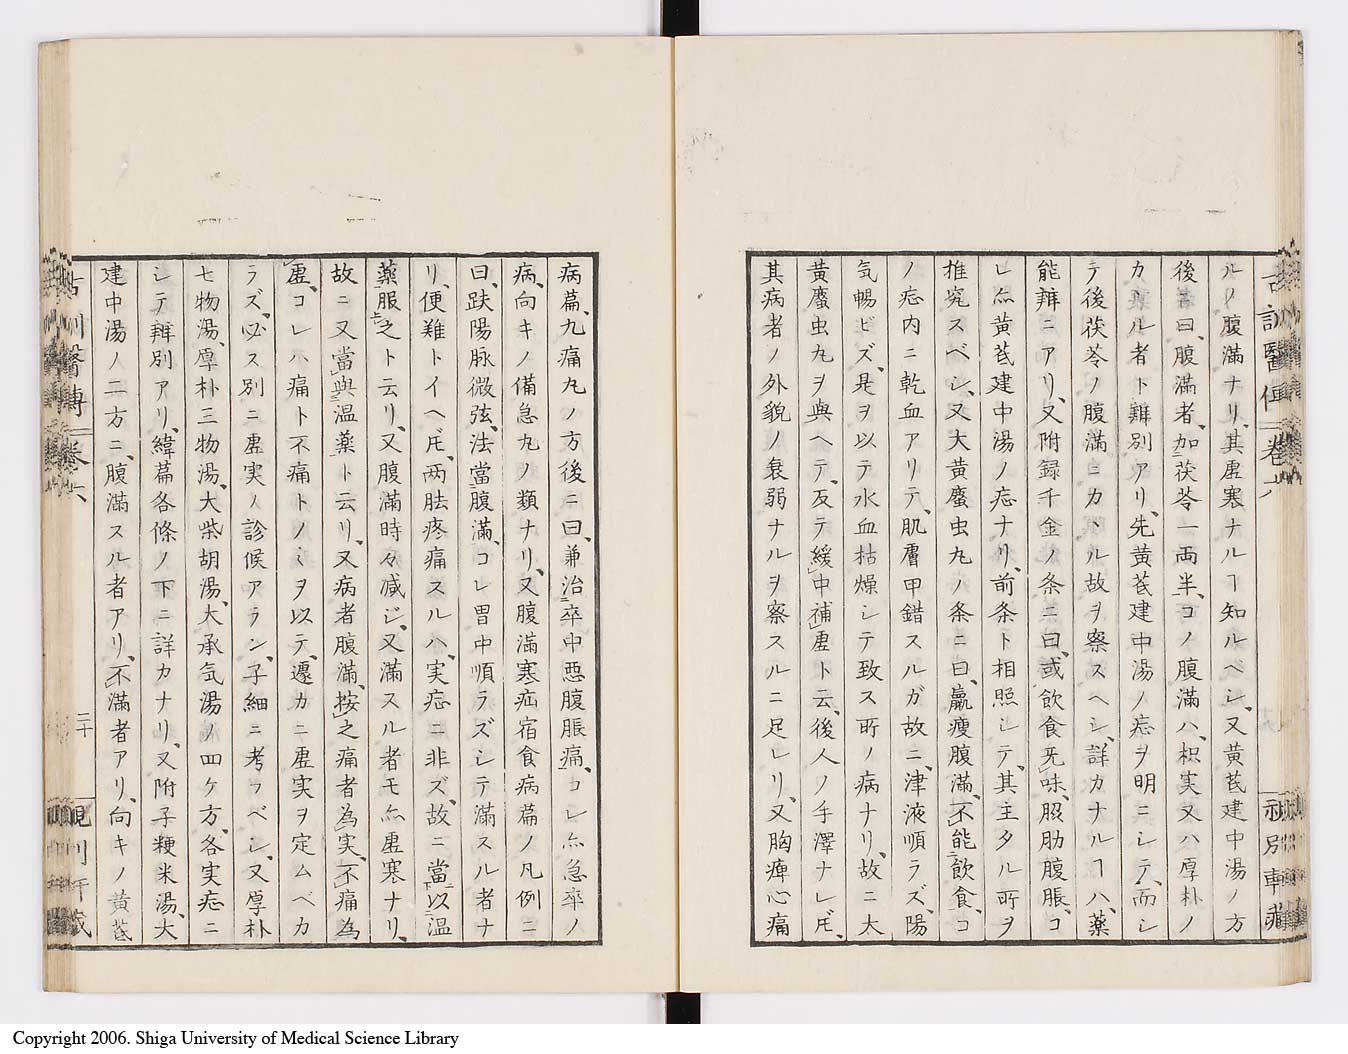 ルノ腹滿ナリ、其虚寒ナルヿ知ルベシ、又黄芪建中湯ノ方
後ニ曰、腹滿者、加茯苓一両半、コノ腹滿ハ、枳実又ハ厚朴ノ
カヽル者ト辨別アリ、先黄芪建中湯ノ㾗ヲ明ニシテ、而シ
テ後茯苓ノ腹滿ニカヽル故ヲ察スヘシ、詳カナルヿハ、薬
能辨ニアリ、又附録千金ノ条ニ曰、或飲食旡味、脇肋腹脹、コ
レ亦黄芪建中湯ノ㾗ナリ、前条ト相照シテ、其主タル所ヲ
推究スベシ、又大黄䗪虫丸ノ条ニ曰、羸瘦腹滿、不能飲食、コ
ノ㾗内ニ乾血アリテ、肌膚甲錯スルガ故ニ、津液順ラズ、陽
気暢ビズ、是ヲ以テ水血枯燥シテ致ス所ノ病ナリ、故ニ太
黄䗪虫丸ヲ與ヘテ、反テ緩中補虚ト云、後人ノ手澤ナレ𪜈、
其病者ノ外貌ノ衰弱ナルヲ察スルニ足レリ、又胸痺心痛
病篇、九痛丸ノ方後ニ曰、兼治卒中悪腹脹痛、コレ亦急卒ノ
病、向キノ備急丸ノ類ナリ、又腹滿寒疝宿食病篇ノ凡例ニ
曰、趺陽脉微弦、法當腹滿、コレ胃中順ラズシテ滿スル者ナ
リ、便難トイヘ𪜈、両胠疼痛スルハ、実㾗ニ非ズ、故ニ當以温
薬服之ト云リ、又腹滿時々减ジ、又滿スル者モ亦虚寒ナリ、
故ニ又當與温薬ト云リ、又病者腹滿、按之痛者為実、不痛為
虚、コレハ痛ト不痛トノミヲ以テ、遽カニ虚実ヲ定ムベカ
ラズ、必ス別ニ虚実ノ診候アラン、子細ニ考フベシ、又厚朴
七物湯、厚朴三物湯、大柴胡湯、大承気湯ノ四ケ方、各実㾗ニ
シテ辨別アリ、緯篇各條ノ下ニ詳カナリ、又附子粳米湯、大
建中湯ノ二方ニ、腹滿スル者アリ、不滿者アリ、向キノ黄芪
古訓醫傳 卷六
二十
Copyright 2006. Shiga University of Medical Science Library